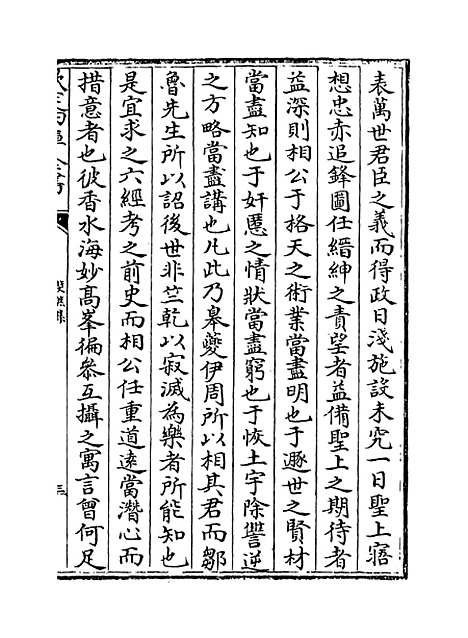 表萬世君臣之義而得政日淺施設未究一日聖上寤
想忠赤追鋒圖任縉紳之責望者益備聖上之期待者
益深則相公于格天之術業當盡明也于遯世之賢材
當盡知也于奸慝之情狀當盡窮也于恢土宇除讐逆
之方略當盡講也凡此乃皋夔伊周所以相其君而鄒
魯先生所以詔後世非竺乾以寂滅為樂者所能知也
是宜求之六經考之前史而相公任重道逺當潛心而
措意者也彼香水海妙髙峯徧叅互攝之寓言曾何足
欽定四庫全書
斐然集
三